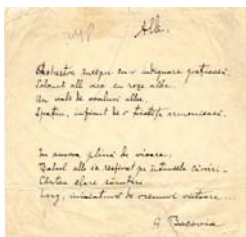 Alb.
Orchestra începu cu-o indignare grațioasă.
Salonul alb visa cu roze albe.
Un vals de voaluri albe.
Spațiu, infinit de o tristeță armonioasă.
În aurora plină de vioare,
Balul alb s-a resfirat pe întinsele cărări.
Cântau clare sărutări
Larg, miniatură de vremuri viitoare...
G. Bacovia